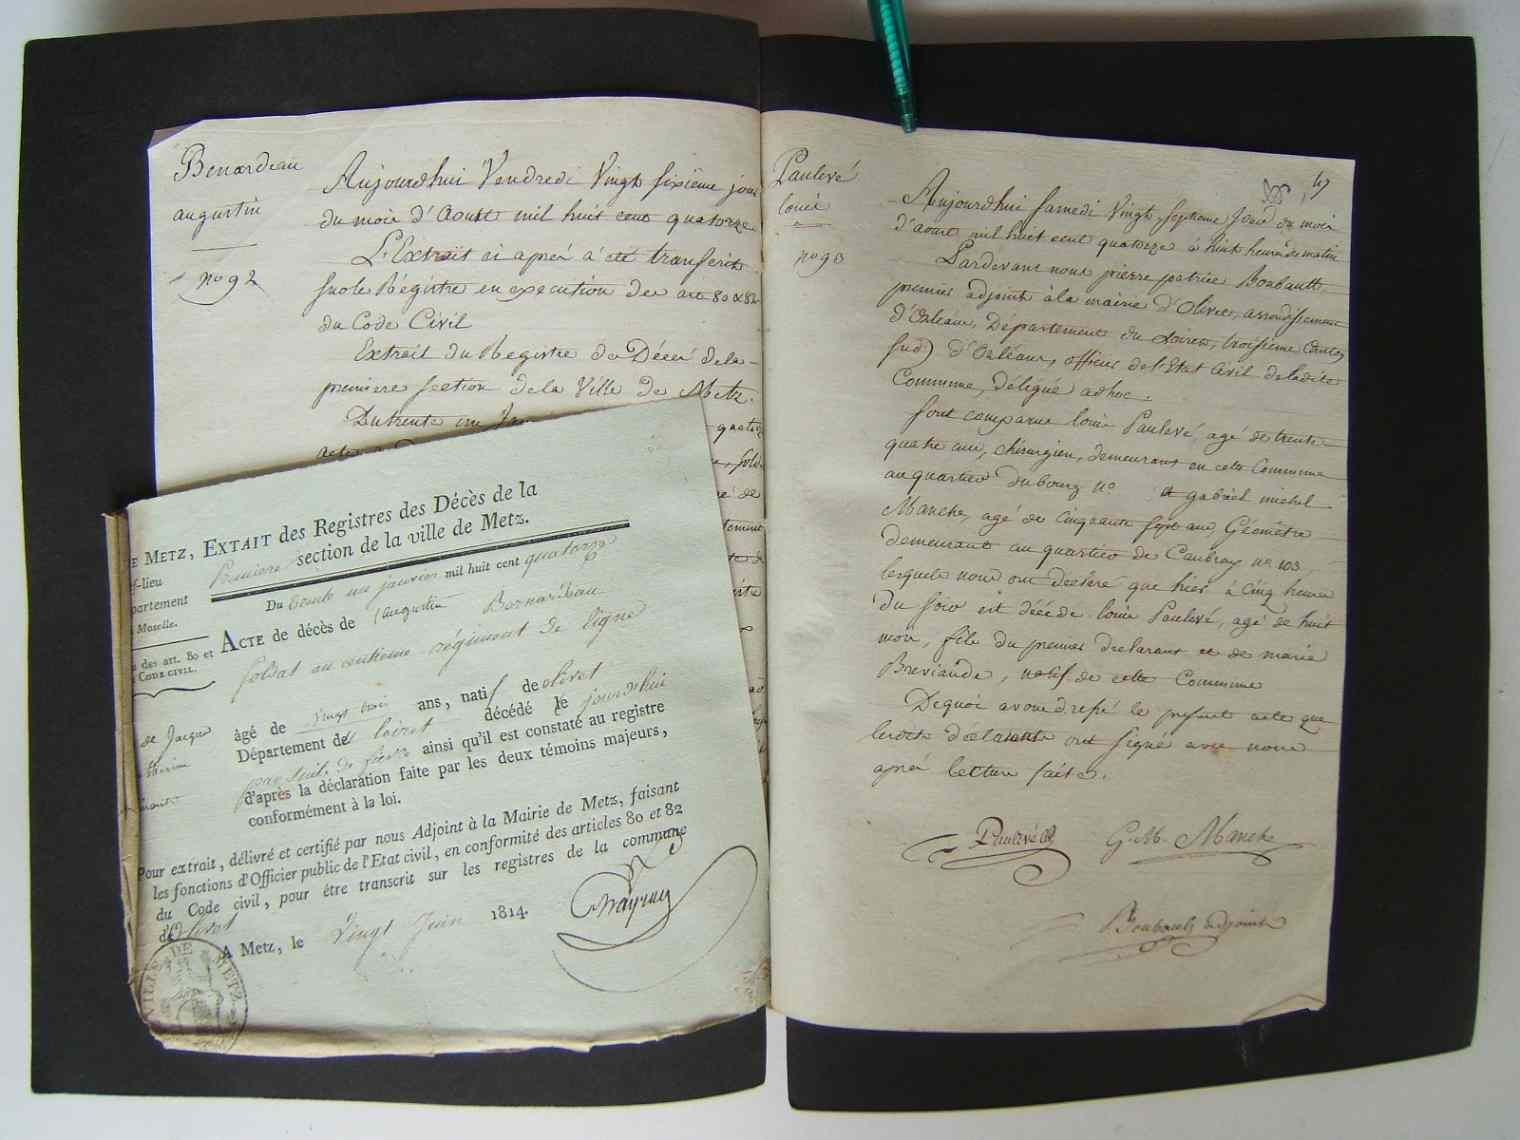 Benardeau
augustin
no 92
Aujourdhui Vendredi Vingt sixième jour
du mois d'Aoust mil huit cent quatorze
L'Extrait ci après à été transcrit
sur le Régistre en execution des art 80 & 82
du Code Civil
Extrait du Régistre de Décès de la
premiere section de la Ville de Metz.
Du trente un
quatorz
DE METZ,
f-lieu
partement
Moselle.
des art. 80 et
CODE CIVIL.
de Jacques
EXTAIT des Registres des Décès de la
Premiere section de la ville de Metz.
Du trente un janvier mil huit cent quatorze
ACTE de décès de augustin
Soldat au centieme régiment de ligne
âgé de vingt trois ans, natif de olivet
Département de loiret décédé le jourdhui
par suite de fievre ainsi qu'il est constaté au registre
d'après la déclaration faite par les deux témoins majeurs,
conformément à la loi.
Pour extrait, délivré et certifié par nous Adjoint à la Mairie de Metz, faisant
les fonctions d'Officier public de l'Etat civil, en conformité des articles 80 et 82
du Code civil, pour être transcrit sur les registres de la commune
d'Olivet
A Metz, le Vingt Juin 1814.
VILLE DE METZ
Paulevé
louis
no 93
47
Aujourdhui samedi Vingt septieme Jour du mois
d'aout mil huit cent quatorze à huit heures du matin
Pardevant nous pierre patrice Boubault
premier adjoint à la mairie d'Olivet, arrondissement
d'Orléans, Département du Loiret, troisième Canton
sud) d'Orléans, officier de l'Etat Civil de ladite
Commune, délégué adhoc.
sont comparus louis Paulevé, agé de trente
quatre ans, chirurgien, demeurant en cette Commune
au quartier du bourg no et gabriel michel
Manche, agé de Cinquante sept ans, Géomètre
demeurant au quartier de Caubray no 103,
lesquels nous ont déclaré que hier à Cinq heures
du soir est décédé louis Paulevé, agé de huit
mois, fils du premier declarant et de marie
Breviande, natif de cette Commune
De quoi avons dressé le présent acte que
lesdits déclarants ont signé avec nous
après lecture faite.
Paulevé G. M. Manche
Boubault adjoint